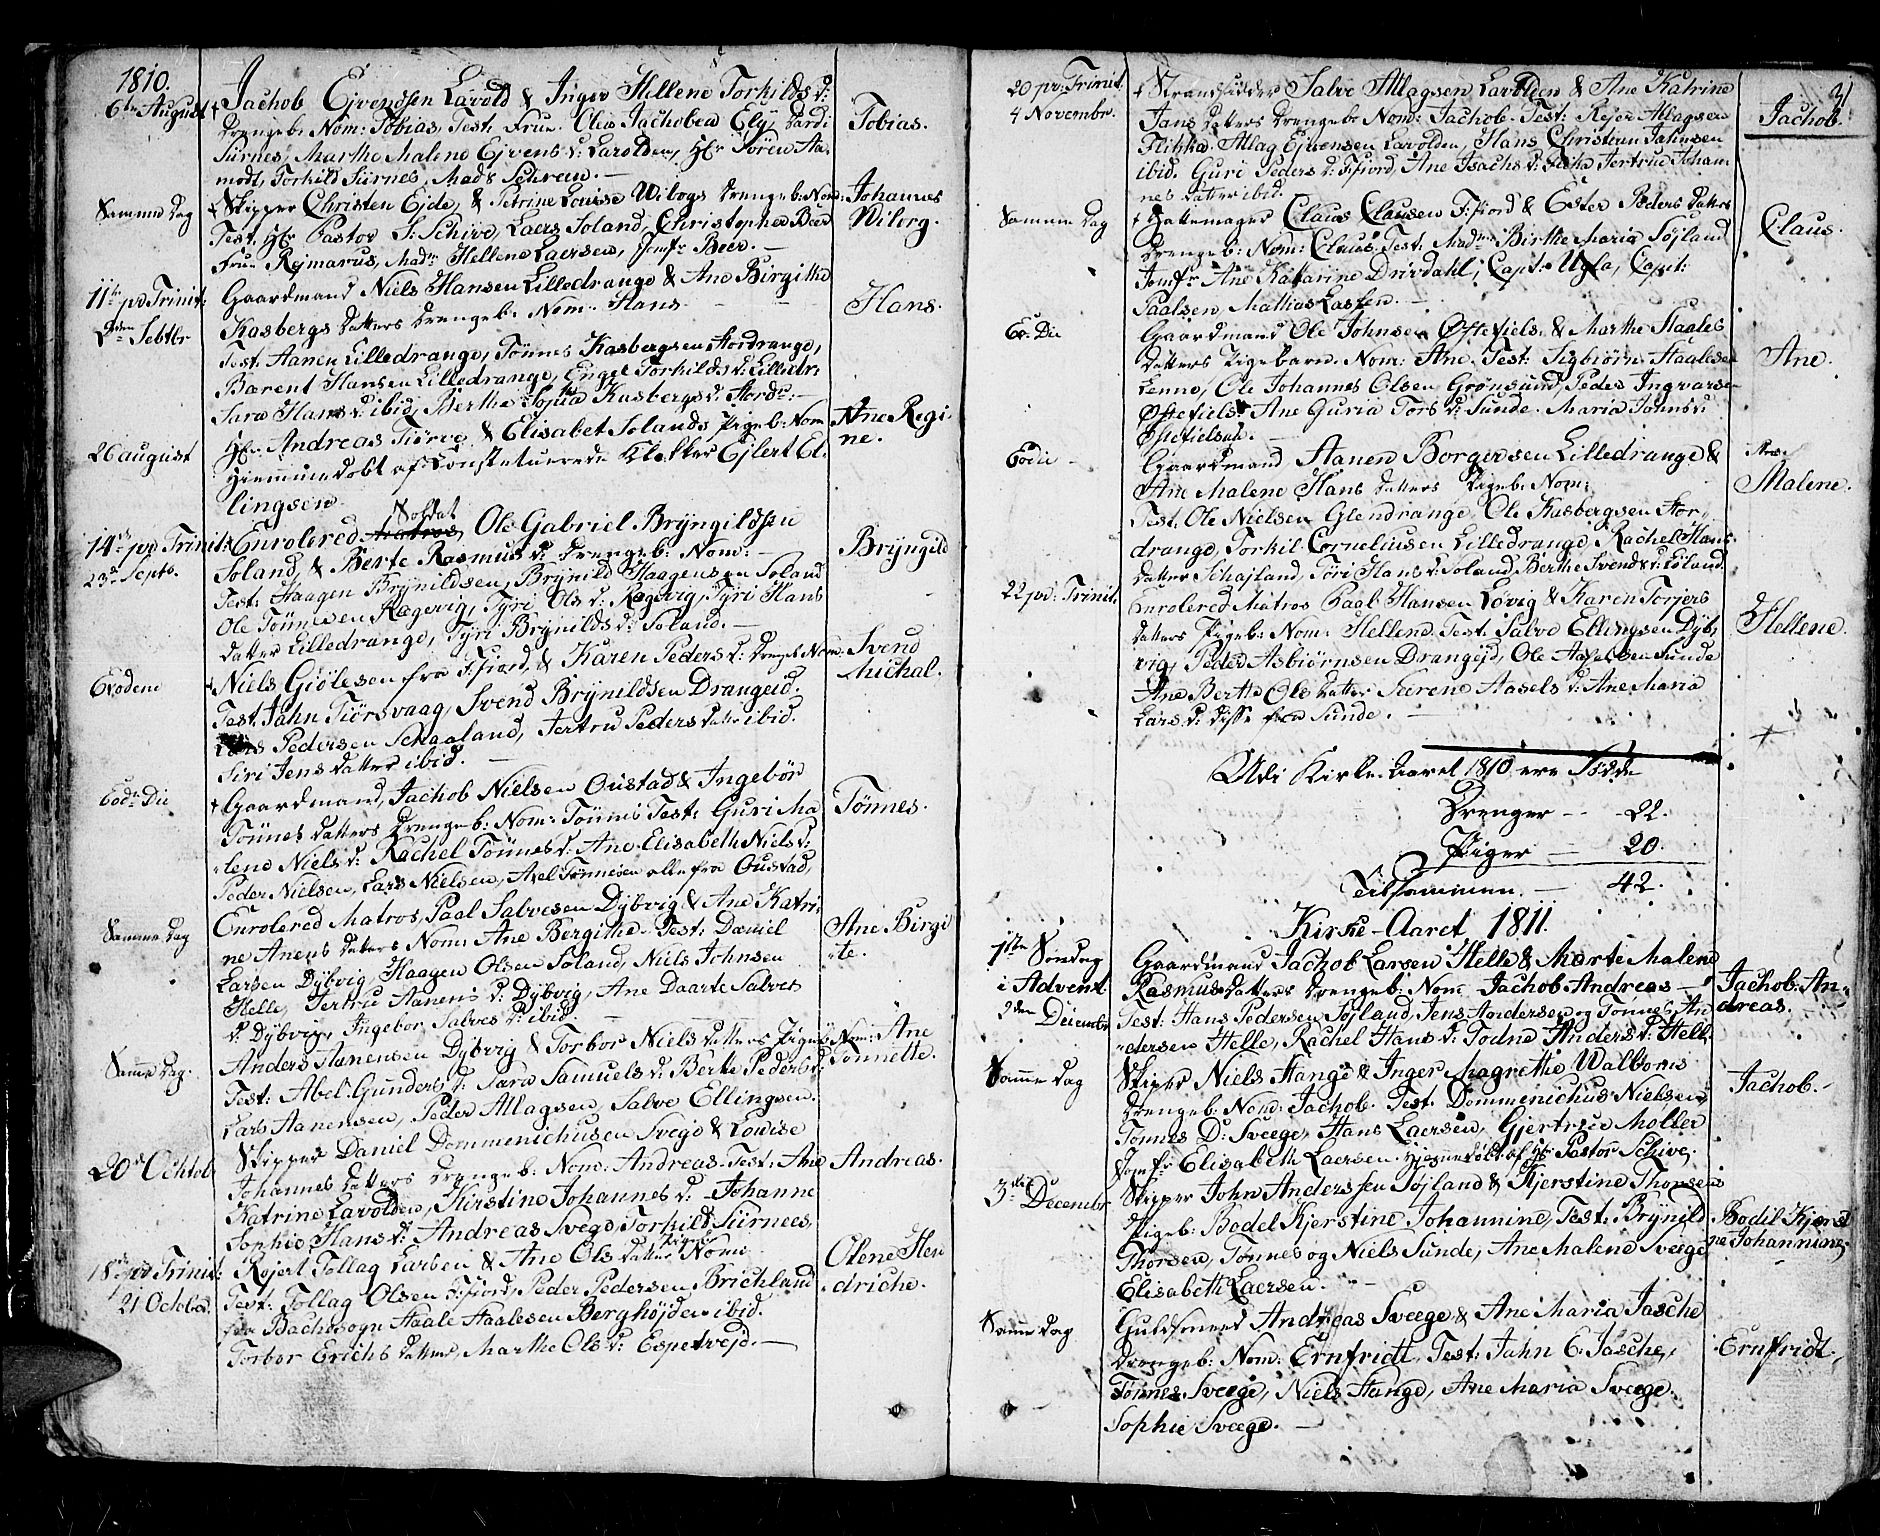 1810.
6te August
† Jachob Ejvendsen Lavold & Inger Hellene Torkilds d:
Drengeb: Nom: Tobias, Test: Frue Olea Jachobea Ely, Dardi
Tobias.
Siirnes, Marthe Malene Ejvens d: Larolden, Hr Søren Aa-
modt, Torkild Siirnes, Mads Schreu. —
Samme Dag
† Skipper Christen Eide, & Petrine Louise Wibogs Drengeb: Nom:
Johannes
Test. Hr Pastor S: Schive, Laers Soland, Christopher Beer
Wiborg.
Frue Rejmarus, Madm Hellene Laersen, Jomfr Beer. —
11te pd Trinit:
2den Sebtbr
Gaardmand Niels Hansen Lilledrange & Ane Birgithe
Kasbergs Datters Drengeb: Nom: Hans
Hans.
Test: Aanen Lilledrange, Tønnes Kasbergsen Stordrange,
Barent Hansen Lilledrange, Engel Torkilds d: Lilledr:
Sara Hans d: ibid, Berthe Sophia Kasbergs d: Stordr: —
26 august
Hr: Andreas Tiörve & Elisabet Solands Pigeb: Nom
Ane Regi-
ne.
Hiemmedøbt af Constetuerede Klokker Ejlert El-
lingsen
14de pd Trinit:
23de Septb.
Enrolered Soldat Ole Gabriel Brÿngildsen
Soland & Berte Rasmus d: Drengeb: Nom: —
Brÿngild
Test: Haagen Brÿnildsen, Brÿnild Haagensen Soland
Ole Tønnesen Ragevig, Tÿri Ols d: Ragevig, Tÿri Hans
Datter Lilledrange, Tÿri Brÿnilds d: Soland. —
Eodem
† Niels Giölesen fra F:fiord, & Karen Peders d: Drengeb Nom:
Svend
Michal.
Test. Jahn Tiörsvaag, Svend Brÿnildsen Drangeid.
Lars Pedersen Schaaland, Jertru Peders Datter ibid.
Siri Jens Datter ibid. —
Eodm Die
† Gaardmand, Jachob Nielsen Oustad & Ingebör
Tönnes Datters Drengeb: Nom: Tönnis Test: Guri Ma
Tønnes.
-lene Niels d: Rachel Tønnes d: Ane Elisabeth Niels d:
Peder Nielsen, Lars Nielsen, Axel Tønnesen alle fra Oustad,
Samme Dag
Enrolered Matros, Paal Salvesen Dÿbvig & Ane Katri-
ne Anens Datters Nom: Ane Bergithe. Test: Daniel
Ane Birgi
te.
Larsen Dÿbvig, Haagen Olsen Soland, Niels Johnsen
Helle, Jertru Aanens d: Dÿbvig, Ane Daarte Salves
d: Dÿbvig, Ingebor Salves d: ibid.
Samme Dag.
Anders Aanensen Dÿbvig & Torbor Niels Datters Pigeb Nom:
Ane
Tonnette.
Test: Abel Gunders d: Sara Samuels d: Berte Peders d:
Lars Aanensen, Peder Atlagsen, Salve Ellingsen.
20de Ochtob
Skipper Daniel Dommenichusen Svege & Lowise
Johannes Datters Drengeb: Nom: Andreas. Test: Ane
Andreas.
Katrine Lavolden, Kirstine Johannes d: Johanne
Sophie Hans d: Andreas Svege, Torkild Siirnees,
18de pd Trinit:
21 October
Rejert Tollag Larsen & Ane Ols Datter Pigeb Nom:
Olene Hen
driche.
Test: Tollag Olsen F:fiord, Peder Pedersen Brichland
fra Bachesogn Staale Staalesen Berghöjden ibid.
Torbor Erichs Datter, Marthe Ols d: Espetvejd. —
20 pd: Trinit.
4 Novembr.
21
† Strandsidder Salve Atlagsen Larolden & Ane Katrine
Jans Datters Drengeb: Nom: Jachob. Test: Rejer Atlagsen
Jachob.
Flikka. Atlag Ejvensen Larolden, Hans Christian Jahnsen
ibid. Guri Peders d: F:fiord, Ane Isachs d: Jertrue Johan-
nes Datter ibid.
Samme Dag
† Hattemager Claus Clausen F:fiord & Ester Peders Datters
Drengeb: Nom: Claus. Test: Madme Birthe Maria Söjland
Claus.
Jomfr Ane Katarine Drivdahl, Capt: Ugla, Capt:
Paalsen, Mathias Lassen. —
Eod: Die
Gaardmand Ole Johnsen Østefiels & Marthe Staales
Datters Pigebarn. Nom: Ane. Test: Sigbiörn Staalesen
Ane.
Lenne, Ole Johannes Olsen Grønsund, Peder Ingvarsen
Østefiels, Ane Guria Tors d: Sunde. Maria Johns d:
Østefielset. —
Eodie
Gaardmand Aanen Borgersen Lilledrange &
Ane Malene Hans Datters Pigeb: Nom:
Ane
Malene.
Test: Ole Nielsen Glendrange, Ole Kasbergsen Stor-
drange, Torkil Corneliusen Lilledrange, Rachel Hans
Datter Schajland, Töri Hans d: Soland, Berthe Svends d: Eiland
22 pd: Trinit.
Enrolered Matros Paal Hansen Løvig & Karen Torjers
Datters Pigeb: Nom: Hellene. Test: Salve Ellingsen Dÿb-
Hellene.
vig, Peder Asbiörnsen Drangejd, Ole Aaselsen Sunde
Ane Berthe Ole Datter Seerene Aasels d: Ane Maria
Lars d: disse fra Sunde. —
Udi Kirke-Aaret 1810 ere Födde
Drenger — 22.
Piger — 20.
Tilsammen. — 42.
Kirke-Aaret 1811.
1ste Søndag
i Advent
2den December
Gaardmand Jachob Larsen Helle & Marte Malene
Rasmus Datters Drengeb: Nom: Jachob Andreas —
Jachob An-
dreas.
Test: Hans Pedersen Söjland, Jens Andersen og Tønnes An
-dersen Helle, Rachel Hans d: Todne Anders d: Hell:
Samme Dag
Skiper Niels Stange & Inger Magrethe Walboms
Drengeb: Nom: Jachob. Test: Dommenichus Nielsen,
Jachob.
Tønnes D: Sveege, Hans Laersen, Gjertrue Moller
Jomfr Elisabeth Laersen. Hjemmedöbt af Hr Pastor Schive.
3die Decembr
Skipper John Anderssen Söjland & Kjerstine Thorsens
Pigeb: Bodel Kjerstine Johannine, Test: Brÿnild
Bodil Kjersti
ne Johannine;
Thorsen, Tønnes og Niels Sunde, Ane Malene Sveege
Elisabeth Laersen. —
Samme Dag
Guldsmed Andreas Sveege & Ane Maria Jasche
Drengeb: Nom: Ernfridt. Test: Jahn E. Jasche,
Ernfridt,
Tønnes Sveege, Niels Stange, Ane Maria Sveege.
Sophie Sveege. —